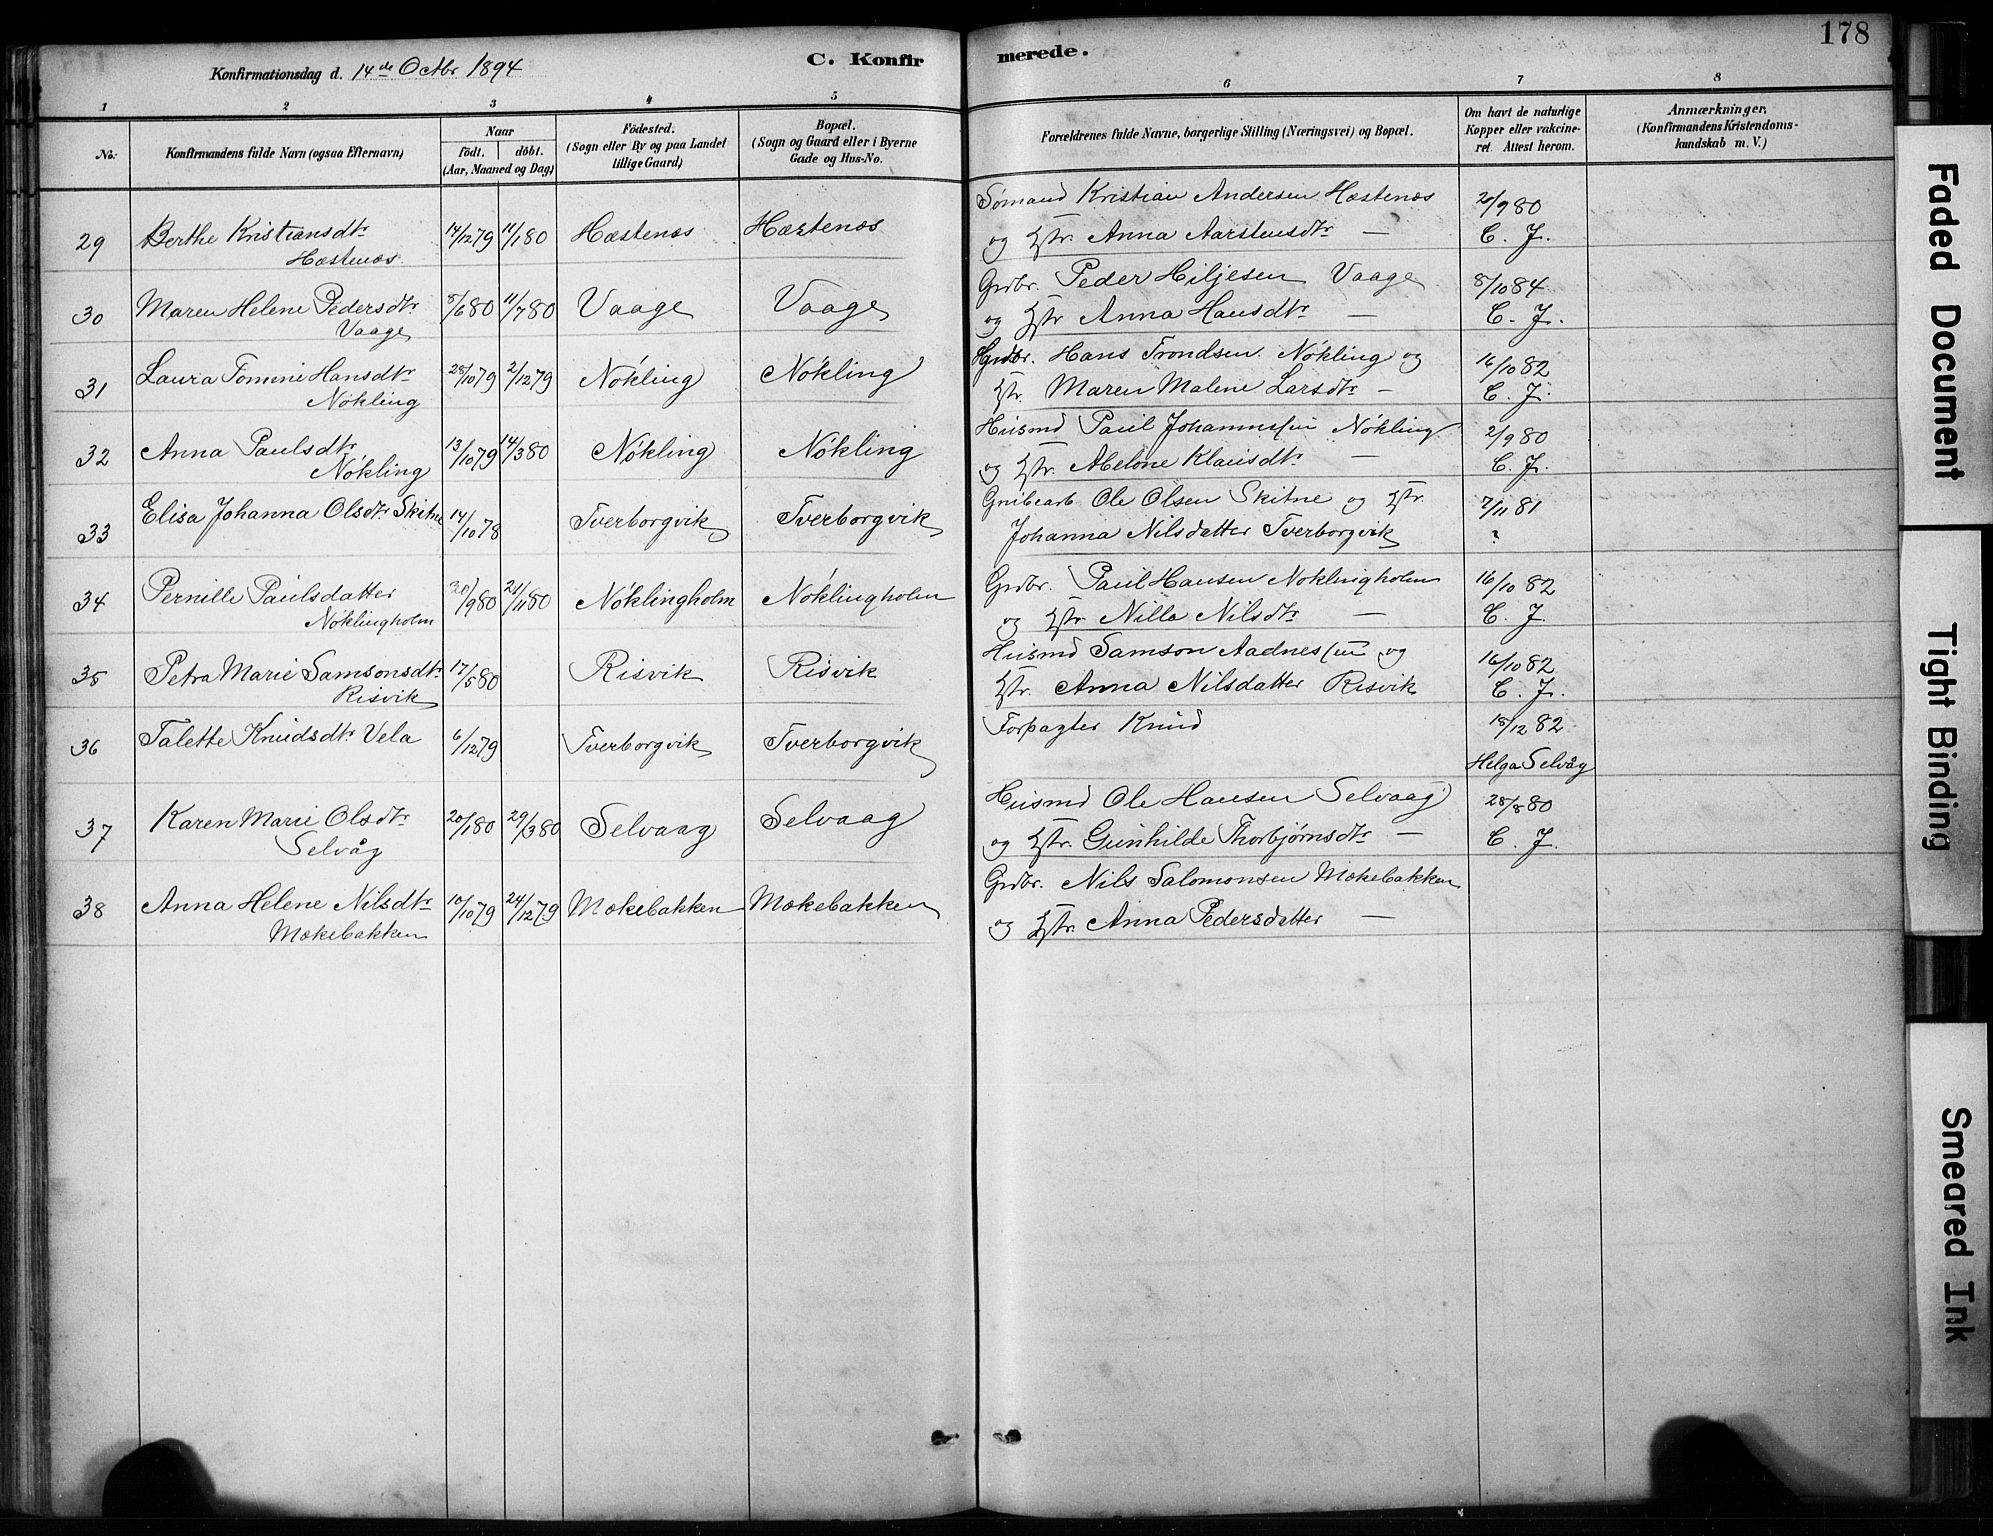 178
Konfirmationsdag d. 14de Octbr 1894
C. Konfirmerede.
1 2 3 4 5 6 7 8
No.
Konfirmandens fulde Navn (ogsaa Efternavn)
Naar födt. döbt. (Aar, Maaned og Dag)
Födested. (Sogn eller By og paa Landet tillige Gaard)
Bopæl. (Sogn og Gaard eller i Byerne Gade og Hus-No.
Forældrenes fulde Navne, borgerlige Stilling (Næringsvei) og Bopæl.
Om havt de naturlige Kopper eller vakcineret. Attest herom.
Anmærkninger. (Konfirmandens Kristendomskundskab m. V.)
29 Berthe Kristiansdtr Hæstenæs 14/12 79 11/1 80 Hæstenæs Hæstenæs Sømand Kristian Andersen Hæstenæs 20/9 80
og Hstr. Anna Aarstensdtr — C. J.
30 Maren Helene Pedersdtr Vaage 8/6 80 11/7 80 Vaage Vaage Grdbr. Peder Hiljesen Vaage 8/10 84
og Hstr Anna Hansdtr — C. J.
31 Laura Tomine Hansdtr Nökling 28/10 79 2/12 79 Nökling Nökling Grdbr. Hans Trondsen Nökling og 16/10 82
Hstr. Maren Malene Larsdtr — C. J.
32 Anna Paulsdtr Nökling 13/10 79 14/3 80 Nökling Nökling Husmd Paul Johannessen Nökling 2/9 80
og Hstr. Abelone Klausdtr — C. J.
33 Elisa Johanna Olsdtr Skitne 14/10 78 Tverborgvik Tverborgvik Grubearb Ole Olsen Skitne og Hstr. 7/11 81
Johanna Nilsdatter Tverborgvik ?
34 Pernille Paulsdatter Nöklingholm 20/9 80 21/11 80 Nöklingholm Nöklingholm Grdbr. Paul Hansen Nöklingholm 16/10 82
og Hstr Nilla Nilsdtr — C. J.
35 Petra Marie Samsonsdtr Risvik 17/5 80 Risvik Risvik Husmd Samson Aadnessen og 16/10 82
Hstr. Anna Nilsdatter Risvik C. J.
36 Talette Knudsdtr Vela 6/12 79 Tverborgvik Tverborgvik Forpagter Knud 18/12 82
Helga Selvåg
37 Karen Marie Olsdtr Selvåg 20/1 80 29/3 80 Selvaag Selvaag Husmd Ole Hansen Selvaag 28/8 80
og Hstr. Gunhilde Thorbjørnsdtr — C. J.
38 Anna Helene Nilsdtr Mækebakken 10/10 79 24/12 79 Mækebakken Mækebakken Grdbr. Nils Salomonsen Mækebakken
og Hstr. Anna Pedersdatter —
Faded Document
Tight Binding
Smeared Ink